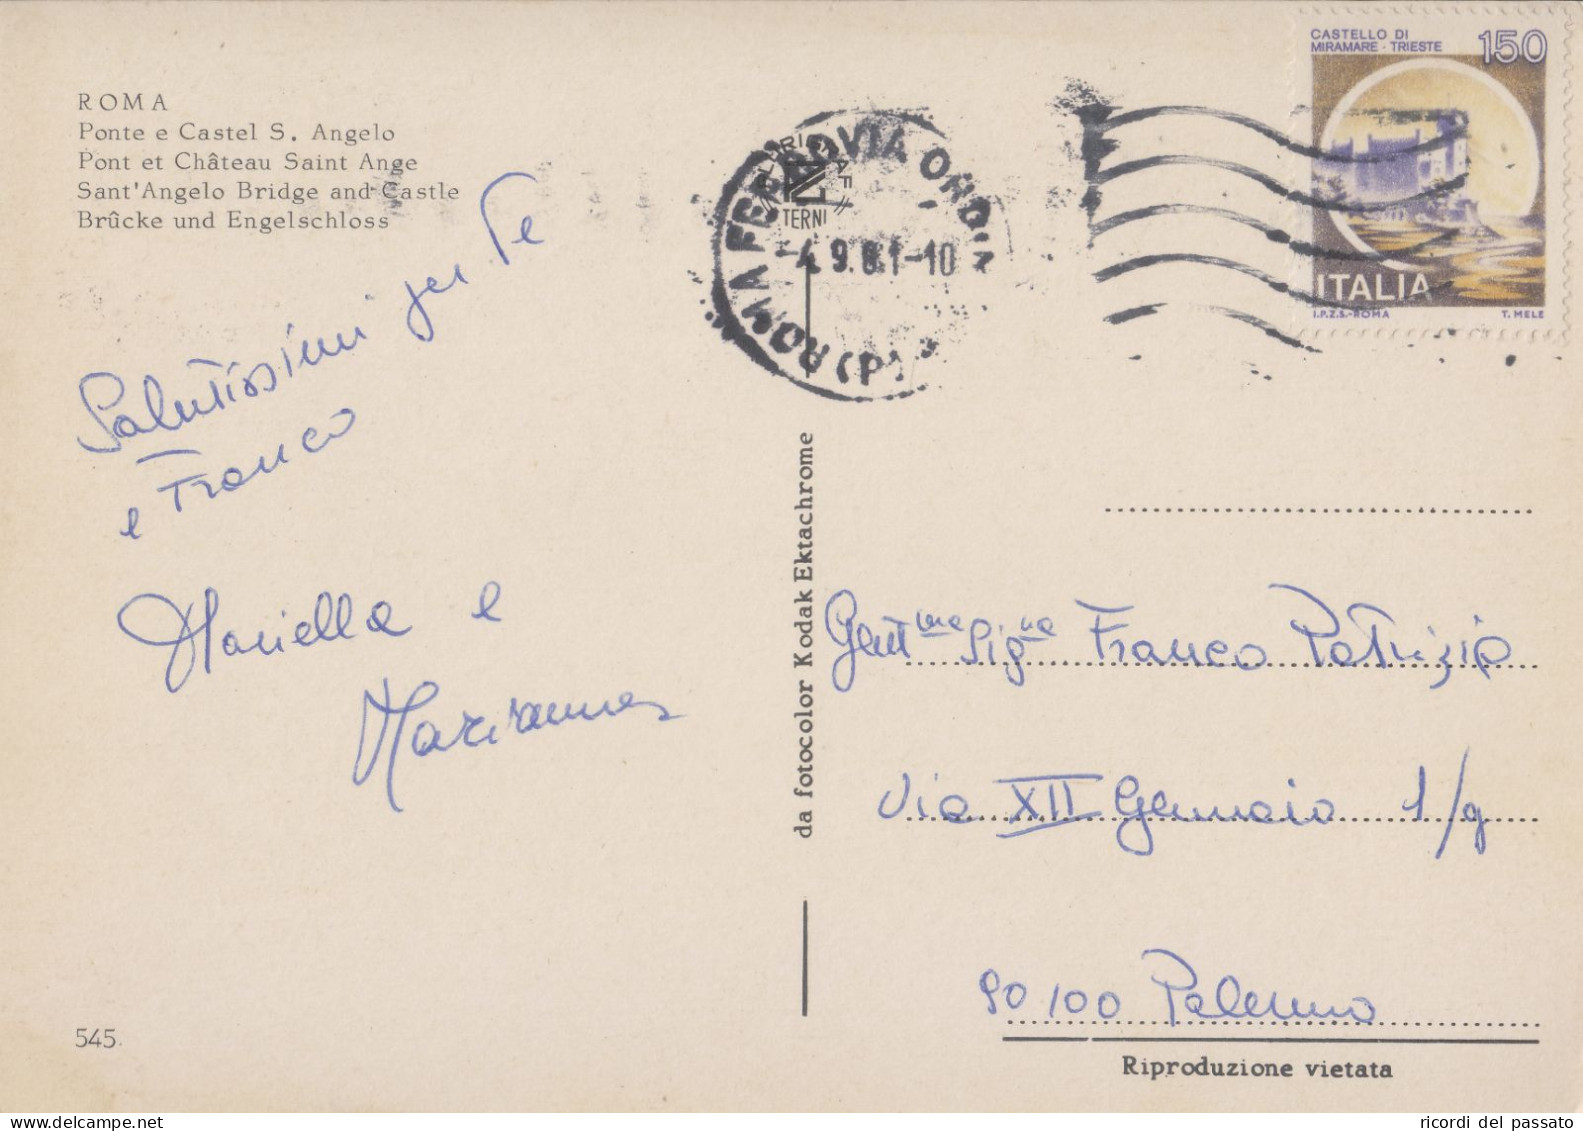 ROMA
Ponte e Castel S. Angelo
Pont et Château Saint Ange
Sant'Angelo Bridge and Castle
Brücke und Engelschloss
Salutissimi per Te
e Franco
Mariella e
Marianna
545
da fotocolor Kodak Ektachrome
PLURIGRAF
TERNI
ROMA FERROVIA ORDIN
-4.9.81-10
CASTELLO DI
MIRAMARE - TRIESTE
150
ITALIA
I.P.Z.S.-ROMA T. MELE
Gent.ma Sig.na Franco Patrizia
Via XII Gennaio 1/g
90100 Palermo
Riproduzione vietata
ricordi del passato